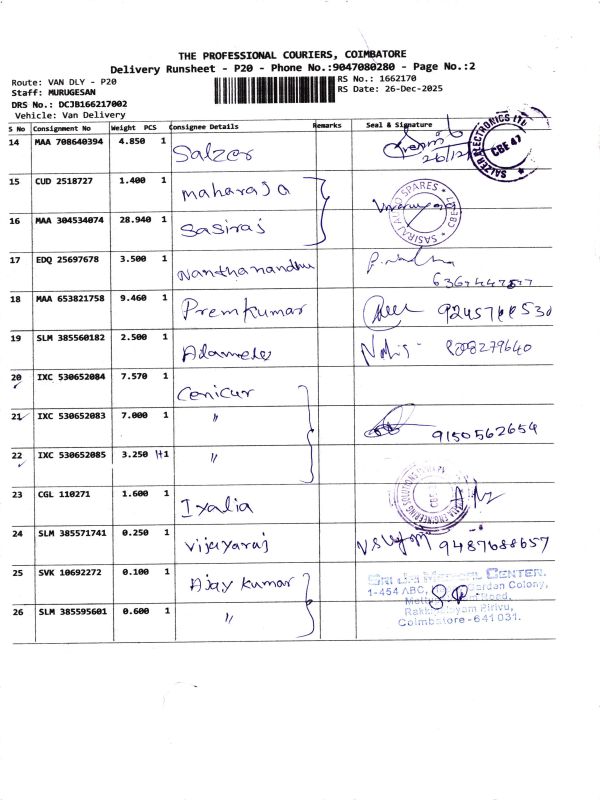 THE PROFESSIONAL COURIERS, COIMBATORE
Delivery Runsheet - P20 - Phone No.:9047080280 - Page No.:2
Route: VAN DLY - P20
RS No.: 1662170
Staff: MURUGESAN
RS Date: 26-Dec-2025
DRS No.: DCJB166217002
Vehicle: Van Delivery
S No Consignment No Weight PCS Consignee Details Remarks Seal & Signature
14 MAA 708640394 4.850 1 Salzer SALZER ELECTRONICS LTD CBE 47
15 CUD 2518727 1.400 1 maharaja
16 MAA 304534074 28.940 1 Sasiraj SASIRAJ AUTO SPARES
17 EDQ 25697678 3.500 1 Nanthanandhu
18 MAA 653821758 9.460 1 Premkumar
19 SLM 385560182 2.500 1 8208279640
20 IXC 530652084 7.570 1 Cenicur
21 IXC 530652083 7.000 1 " 9150562654
22 IXC 530652085 3.250 1+1 "
23 CGL 110271 1.600 1 Iyalia
24 SLM 385571741 0.250 1 vijayaraj 9487688657
25 SVK 10692272 0.100 1 Ajay kumar
SRI JAI MEDICAL CENTER.
1-454 ABC, Garden Colony,
Road,
26 SLM 385595601 0.600 1 "
Pirivu,
Coimbatore-641 031.